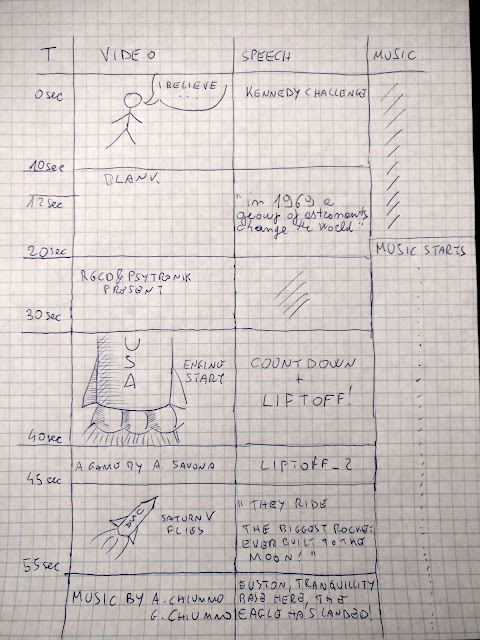 T VIDEO SPEECH MUSIC
0sec
I BELIEVE
...
KENNEDY CHALLENGE
10sec
BLANK
12sec
"in 1969 a
group of astronauts
change the world"
20sec
MUSIC STARTS
RGCD & PSYTRONIK
PRESENT
30sec
U
S
A
ENGINE
START
COUNTDOWN
+
LIFTOFF!
40sec
A GAME BY A. SAVONA
LIFTOFF_2
45sec
USA
SATURN V
FLIES
"THEY RIDE
THE BIGGEST ROCKET
EVER BUILT TO THE
MOON!"
55sec
MUSIC BY A. CHIUMMO
G. CHIUMMO
EUSTON, TRANQUILLITY
BASE HERE, THE
EAGLE HAS LANDED.